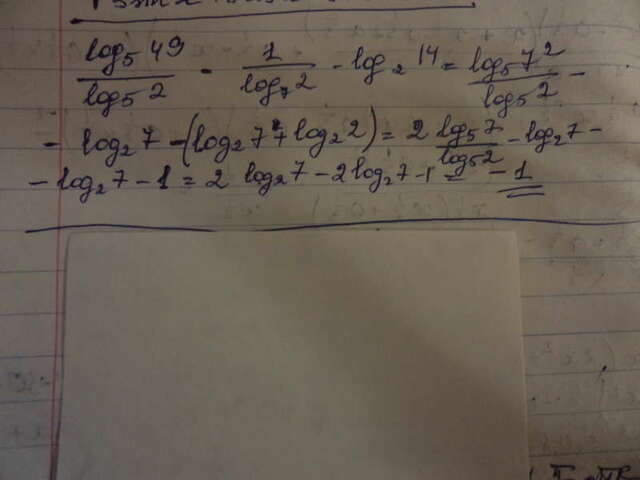 log₅49/log₅2 - 1/log₇2 - log₂14 = log₅7²/log₅2 -
- log₂7 - (log₂7 + log₂2) = 2 log₅7/log₅2 - log₂7 -
- log₂7 - 1 = 2 log₂7 - 2log₂7 - 1 = - 1